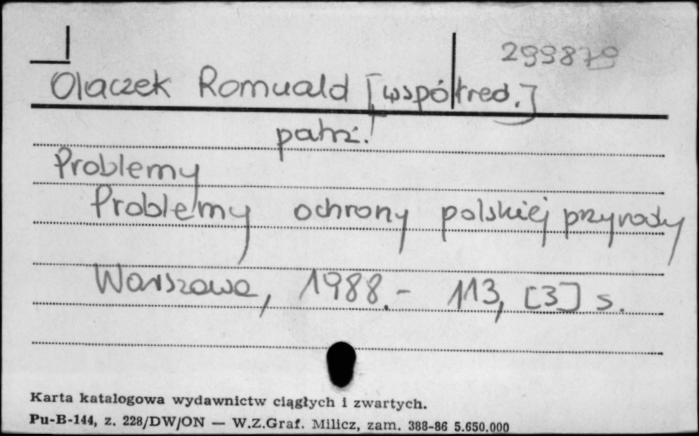 299879
Olaczek Romuald [współred.]
patrz.
Problemy
Problemy ochrony polskiej przyrody
Warszawa, 1988.- 113, [3] s.
Karta katalogowa wydawnictw ciągłych i zwartych.
Pu-B-144, z. 228/DW/ON — W.Z.Graf. Milicz, zam. 388-86 5.650.000